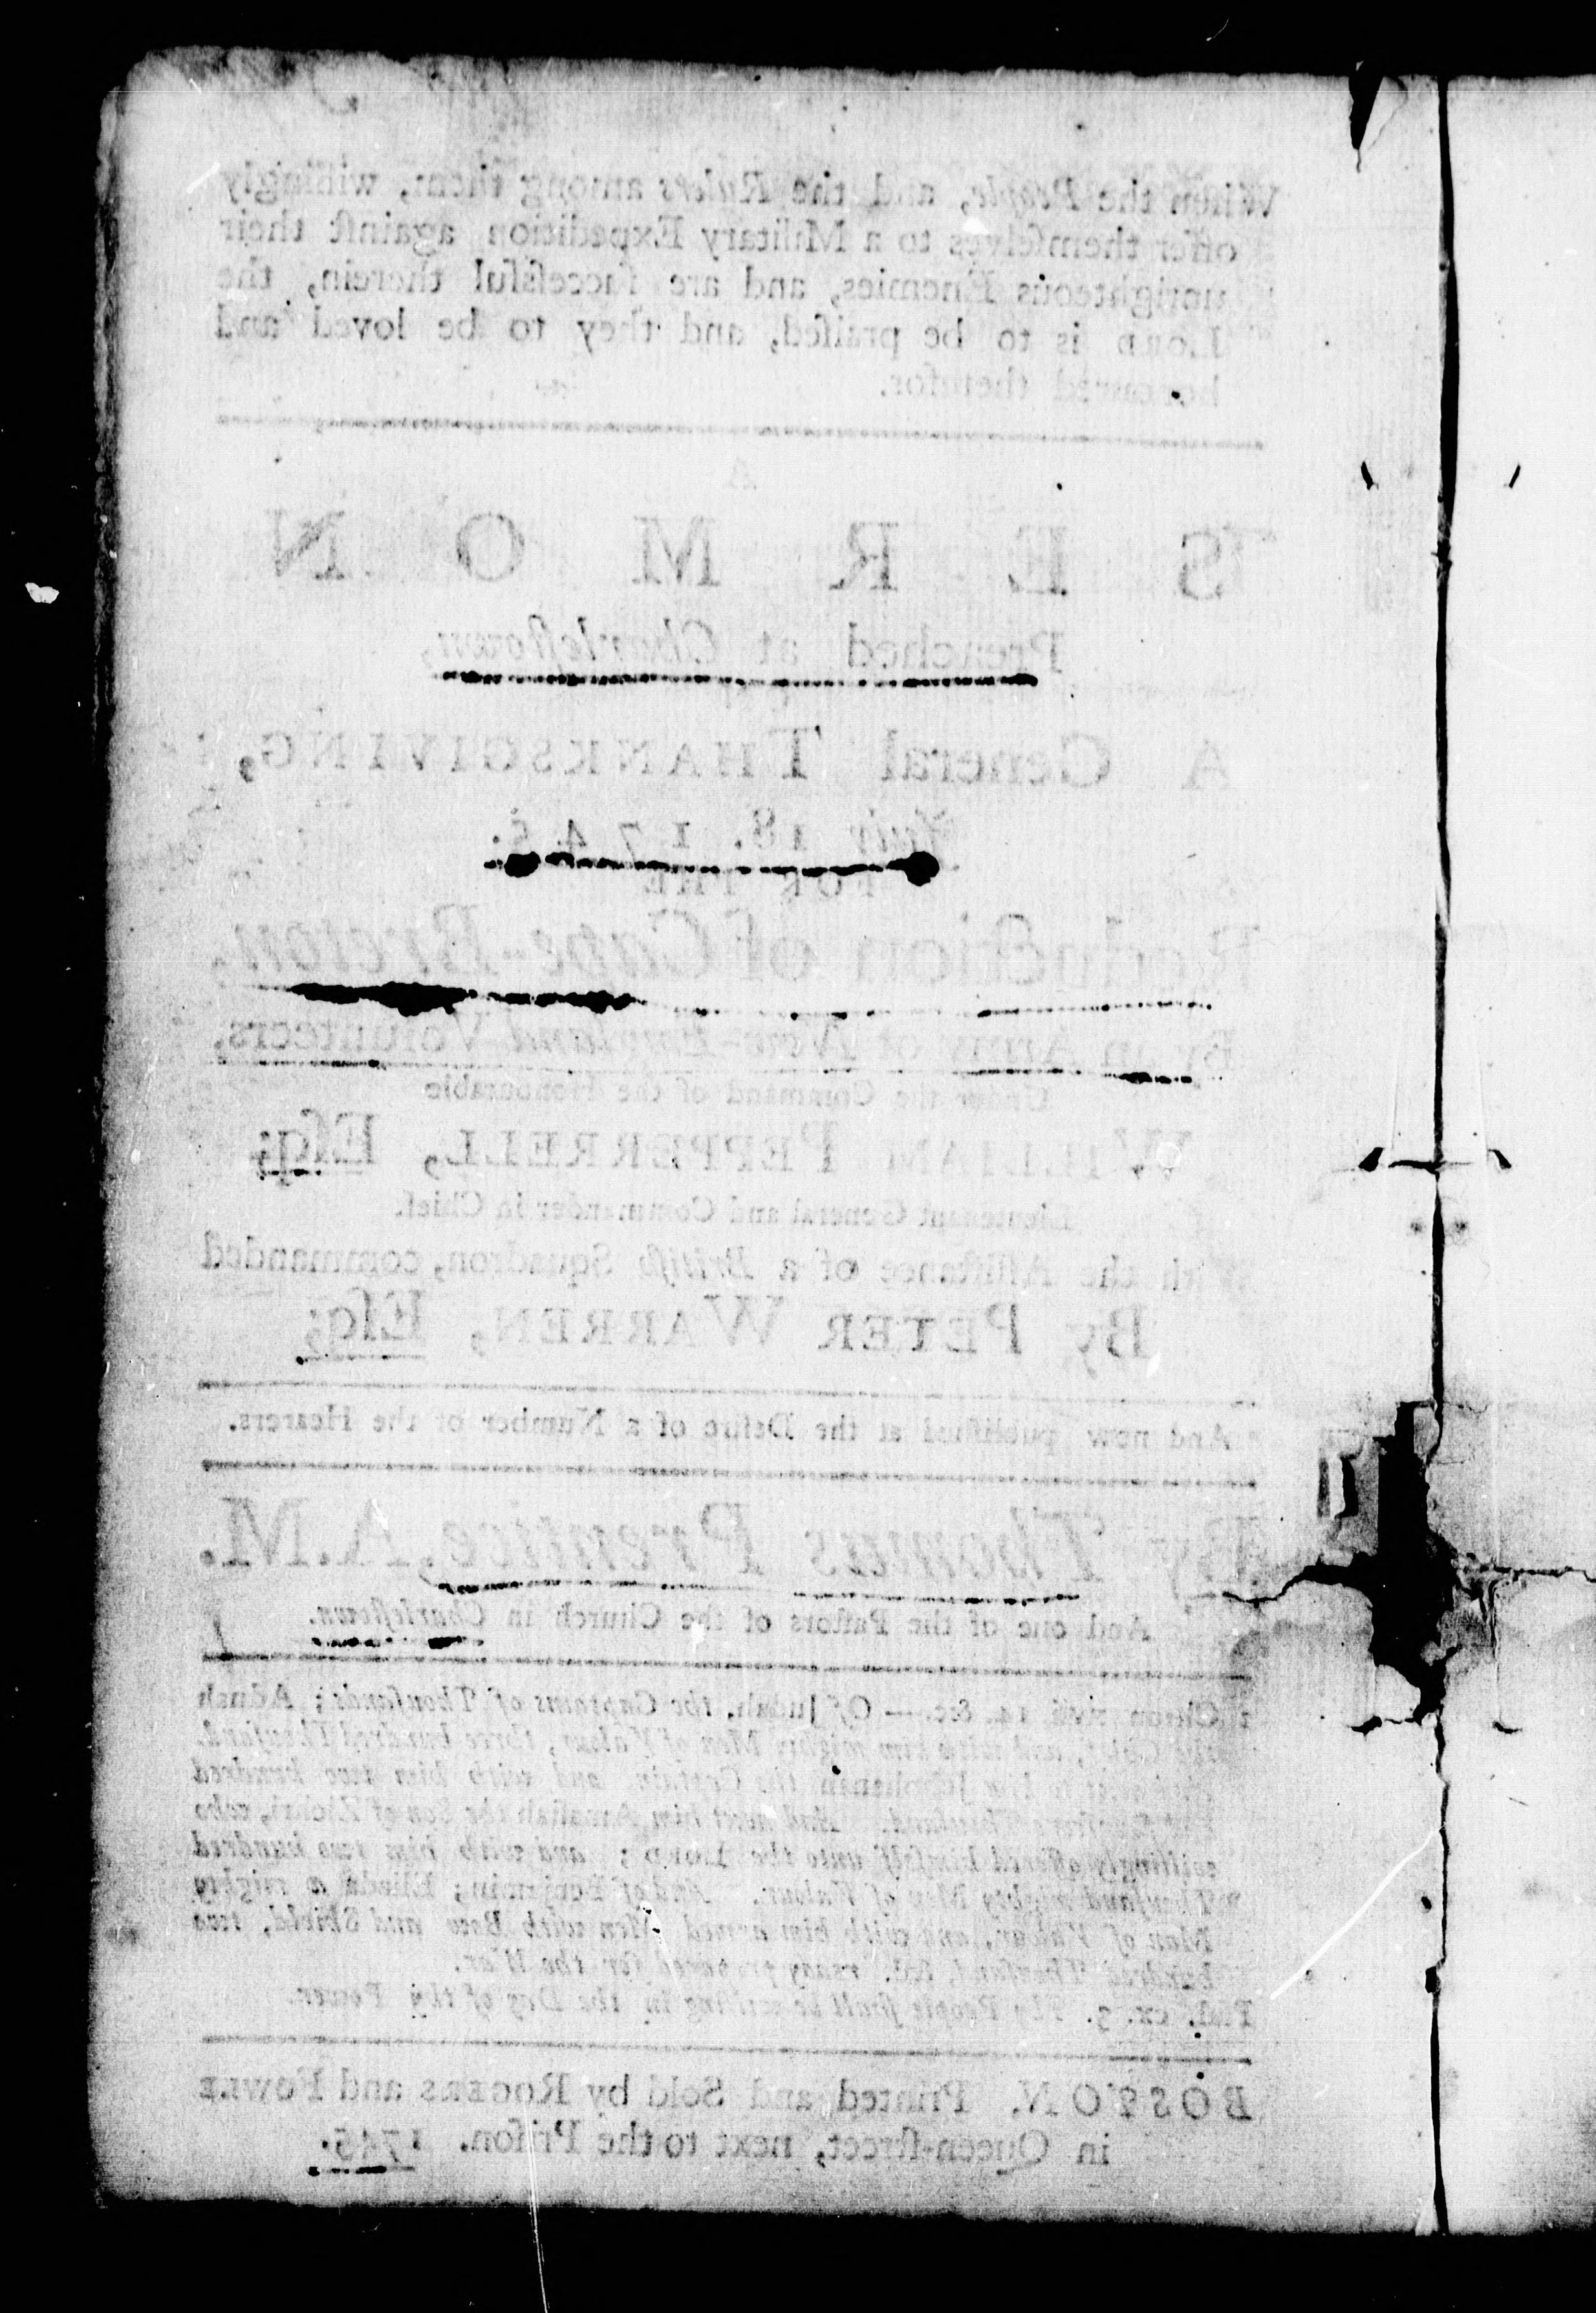 When the People, and the Rulers among them, willingly
offer themſelves to a Military Expedition againſt their
unrighteous Enemies, and are ſucceſsful therein, the
LORD is to be praiſed, and they to be loved and
honoured therefor.
A
SERMON
Preached at Charleſtown,
A General THANKSGIVING,
July 18. 1745.
FOR THE
Reduction of Cape-Breton,
By an Army of New-England Volunteers,
Under the Command of the Honourable
WILLIAM PEPPERRELL, Eſq;
Lieutenant General and Commander in Chief.
With the Aſſiſtance of a Britiſh Squadron, commanded
By PETER WARREN, Eſq;
And now publiſhed at the Deſire of a Number of the Hearers.
By Thomas Prentice, A.M.
And one of the Paſtors of the Church in Charleſtown.
2 Chron xvii. 14. &c. — Of Judah, the Captains of Thouſands; Adnah
the Chief, and with him mighty Men of Valour, three hundred Thouſand.
And next to him Jehohanan the Captain, and with him two hundred
Thouſand. And next him Amaſiah the Son of Zichri, who
willingly offered himſelf unto the LORD; and with him two hundred
Thouſand mighty Men of Valour. And of Benjamin; Eliada a mighty
Man of Valour, and with him armed Men with Bow and Shield, two
hundred Thouſand, &c. ready prepared for the War.
Pſal. cx. 3. Thy People ſhall be willing in the Day of thy Power.
BOSTON, Printed and Sold by ROGERS and FOWLE
in Queen-ſtreet, next to the Priſon. 1745.